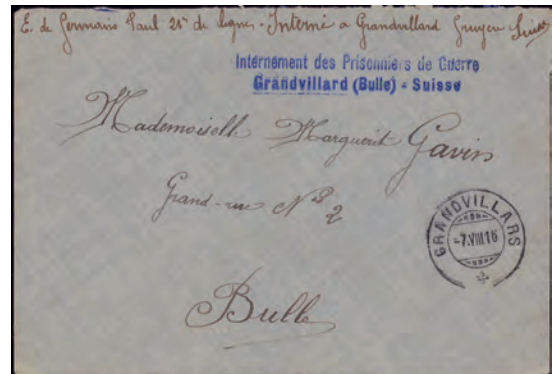 E. de Germains Paul 21e de ligne - Interné a Grandvillard Gruyeu Suisse
Internement des Prisonniers de Guerre
Grandvillard (Bulle) - Suisse
Mademoiselle Marguerit Gavin
Grand-rue No 2
GRANDVILLARS
-7.VIII.16
Bulle